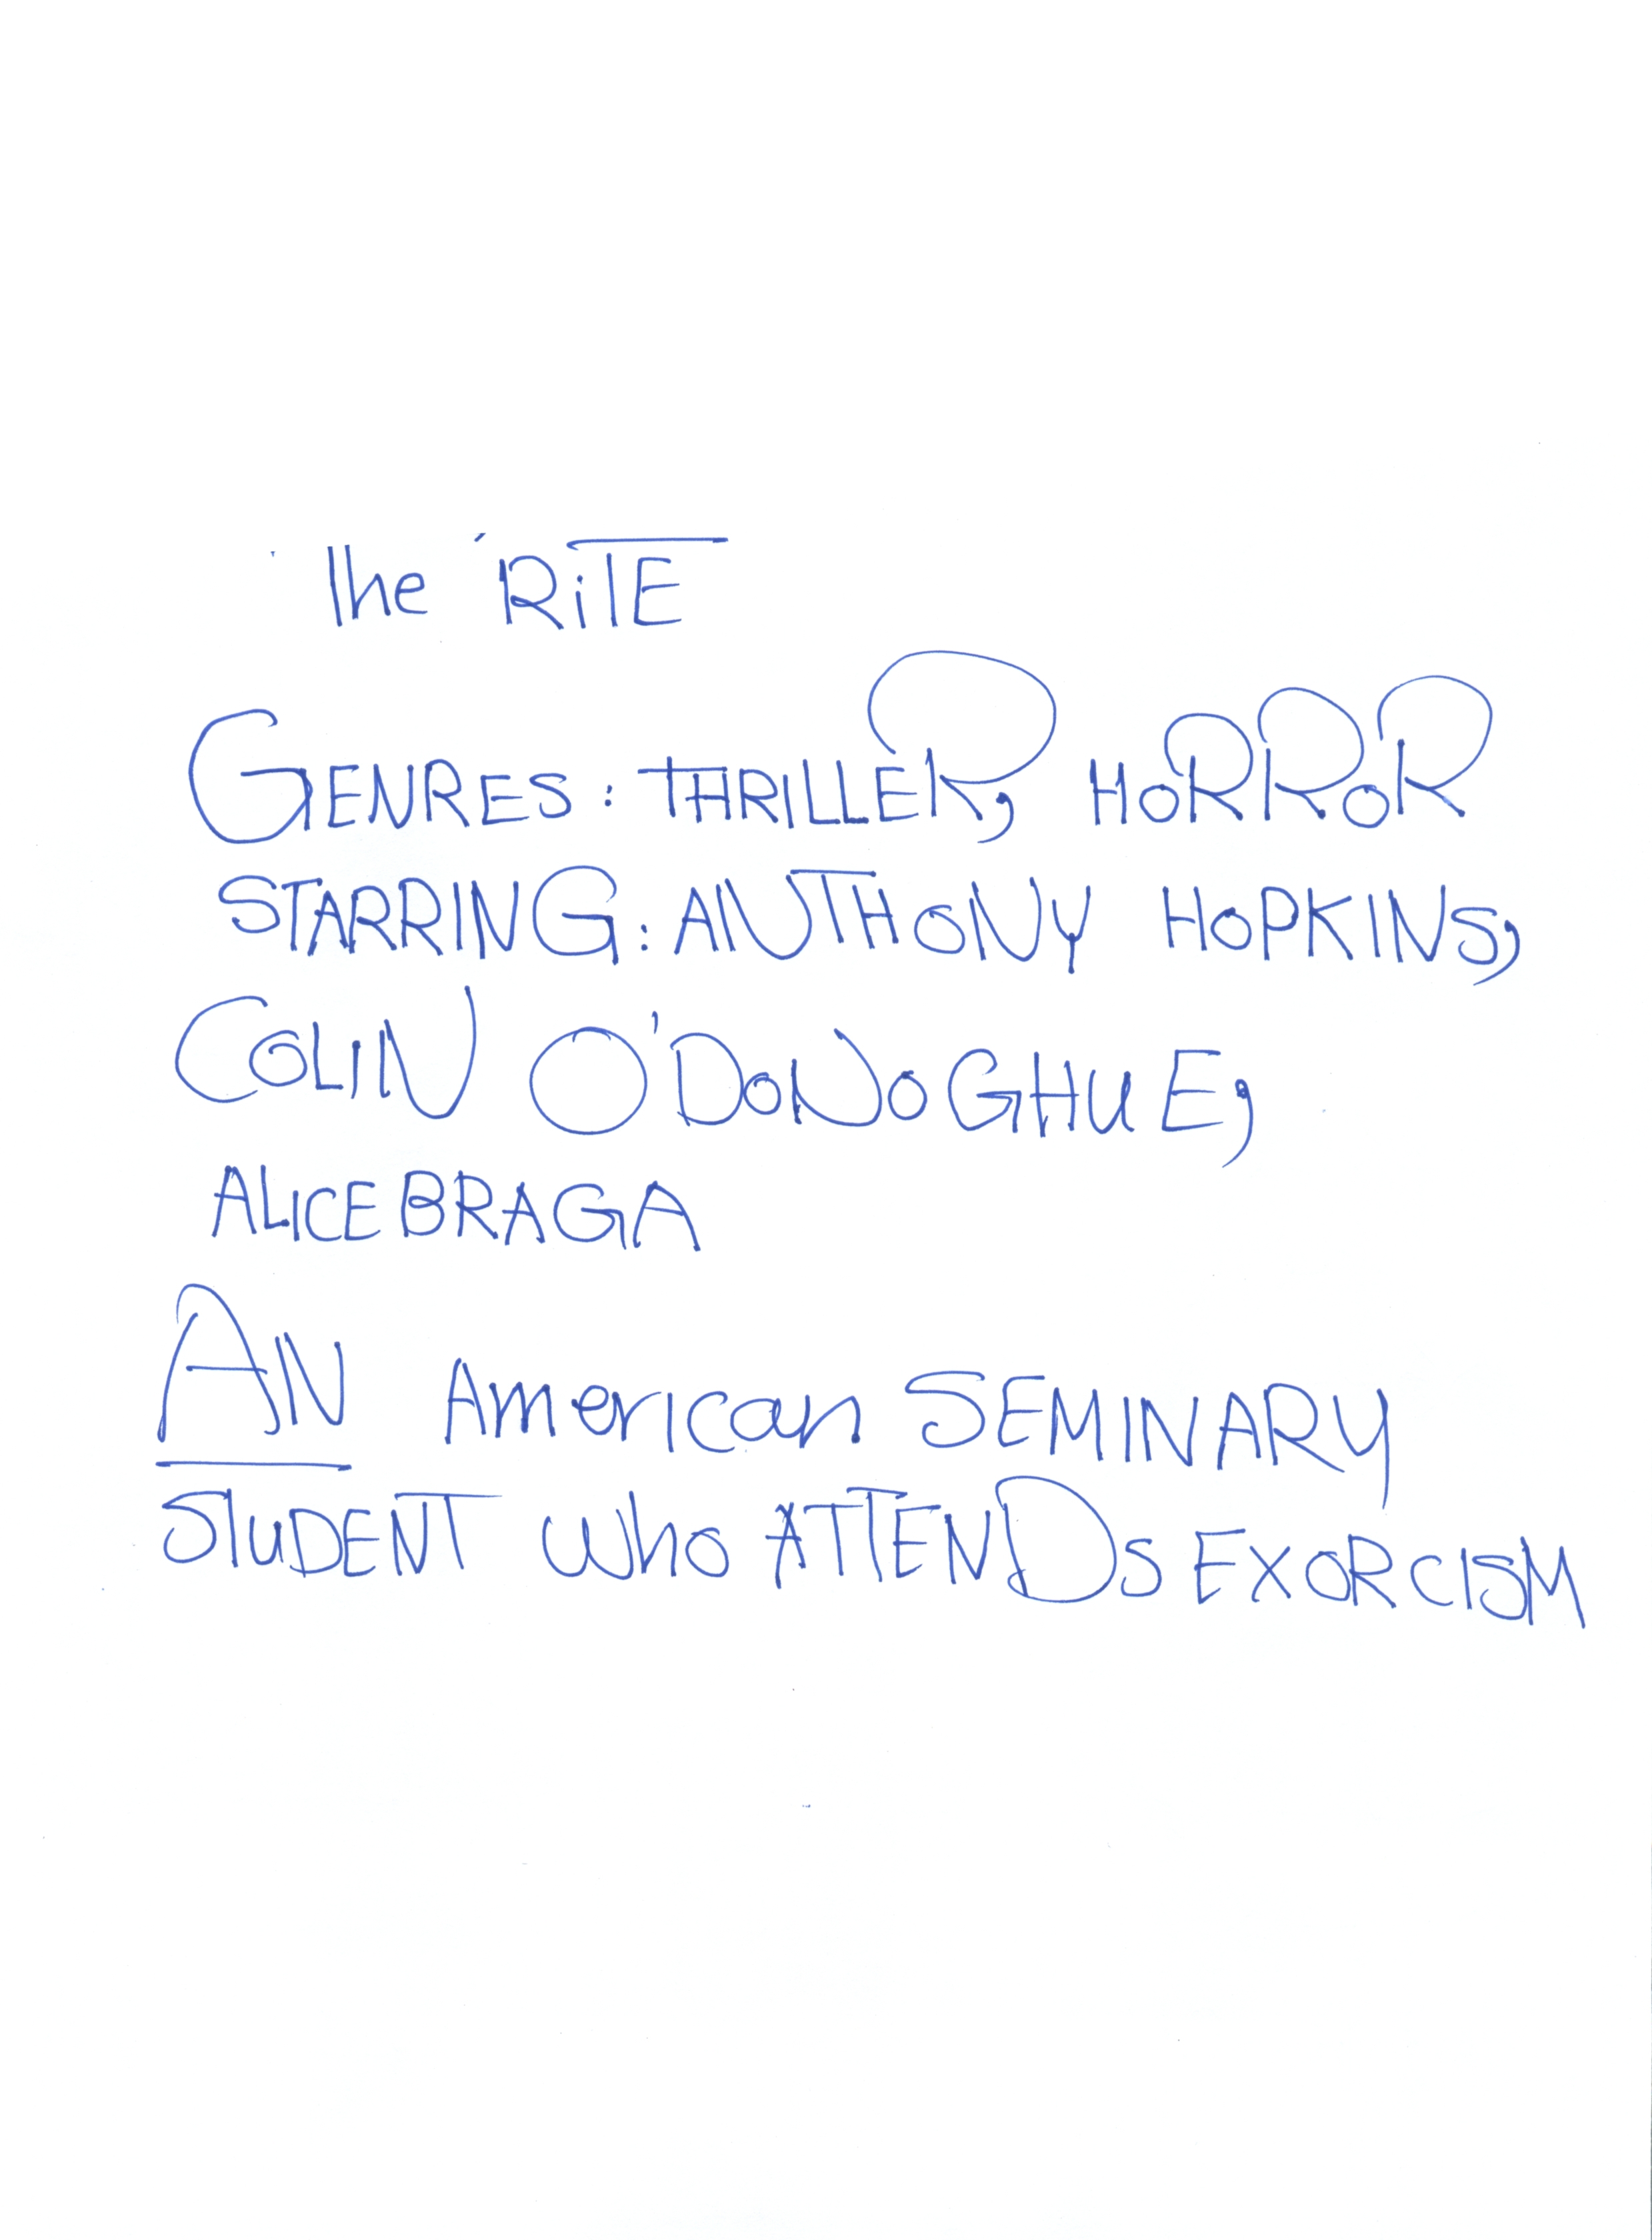 The RiTE
GENRES: THRILLER, HoRRoR
STARRING: ANTHoNY HoPKINS,
COLIN O'DoNoGHUE,
ALICE BRAGA
AN American SEMINARY
STUDENT who ATTENDS EXORCISM